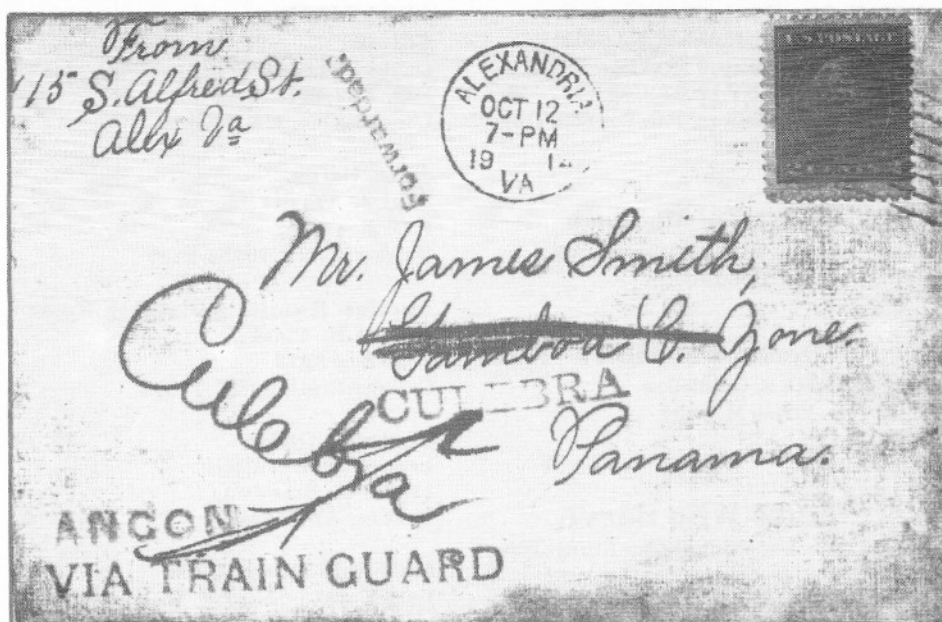 From
115 S. Alfred St.
Alex Va
Forwarded.
ALEXANDRIA
OCT 12
7-PM
19 1
VA
U.S. POSTAGE
Mr. James Smith,
Gamboa C. Zone.
CULEBRA
Culebra
Panama.
ANCON
VIA TRAIN GUARD